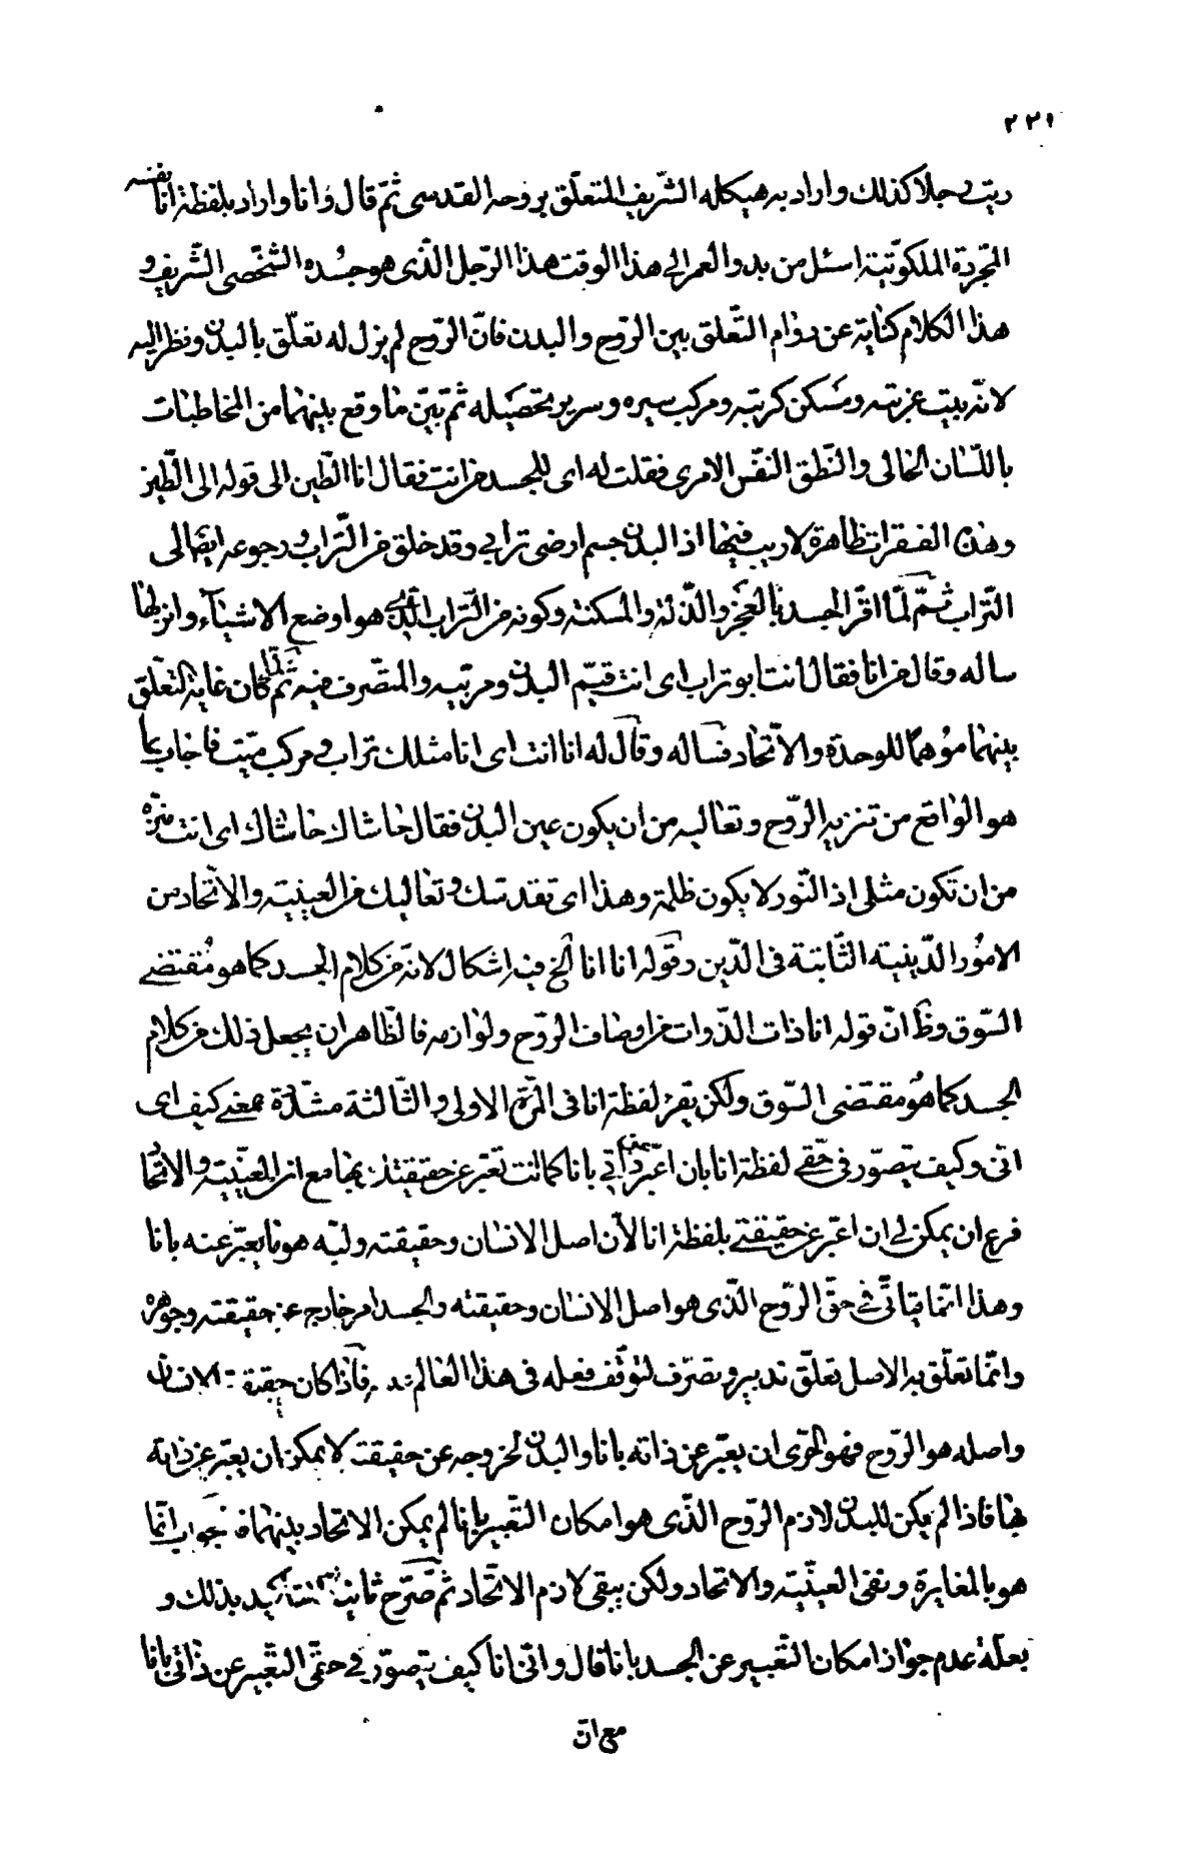 ٢٢١
ريت رجلا كذلك واراد به هيكله الشّريف المتعلّق بروحه القدسى ثمّ قال وانا واراد بلفظة انا نفسه
المجرّدة الملكوتيّة اسئل من بدو العمر الى هذا الوقت هذا الرّجل الّذى هو جسده الشّخصى الشّريف و
هذا الكلام كناية عن دوام التّعلق بين الروّح والبدن فانّ الروّح لم يزل له تعلّق بالبدن ونظر اليه
لانّه بيت عزبته ومسكن كربته ومركب سيره وسرير تحصيله ثمّ تبيّن ما وقع بينهما من المخاطبات
باللّسان الحالى والنّطق النّفس الامرى فقلت له اى للجسد من انت فقال انا الطّين الى قوله الى الطّين
وهذه الفقرات ظاهرة لا ريب فيها اذ البدن جسم ارضى ترابى وقد خلق من التّراب ورجوعه ايضا الى
التّراب ثمّ لمّا اقرّ الجسد بالعجز والذّلة والمسكنة وكونه من التّراب الّذى هو اوضع الاشياء وانزلها
ساله وقال من انا فقال انت ابو تراب اى انت قيّم البدن ومربّيه والمتصّرف فيه ثمّ لمّا كان غاية التعلّق
بينهما موهما للوحدة والاتّحاد فساله وقال له انا انت اى انا مثلك تراب ومركب ميّت فاجاب بما
هو الواقع من تنزيه الرّوح وتعاليه من ان يكون عين البدن فقال حاشاك حاشاك اى انت منزّه
من ان تكون مثلى اذ النّور لا يكون ظلمة وهذا اى تقدسك وتعاليك من العينيّة والاتّحاد من
الامور الدّينية الثّابتة فى الدّين وقوله انا انا الخ فيه اشكال لانّه من كلام الجسد كما هو مقتضى
السّوق وظ انّ قوله انا ذات الذّوات من اوصاف الروّح ولوازمه فالظّاهر ان يجعل ذلك من كلام
الجسد كما هو مقتضى السّوق ولكن يقرء لفظة انا فى المرّة الاولى والثّالثة مشدّدة بمعنى كيف اى
انّى وكيف يتصوّر فى حقّى لفظة انا بان اعبّر عن ذاتى بانا كما انت تعبّر عن حقيقتك بها مع ان العينيّة والاتّحاد
فرع ان يمكن لى ان اعبّر عن حقيقتى بلفظة انا لانّ اصل الانسان وحقيقته ولبّه هو ما يعبّر عنه بانا
وهذا انّما يتاتّى فى حقّ الروّح الّذى هو اصل الانسان وحقيقته والجسد امر خارج عن حقيقته وجوهره
وانّما تعلّق به الاصل تعلّق تدبير وتصرّف لتوقّف فعله فى هذا العالم فاذا كان حقيقة الانسان
واصله هو الروّح فهو الحرّى ان يعبّر عن ذاته بانا والبدن لخروجه عن حقيقته لا يمكن ان يعبّر عن ذاته
بها فاذا لم يكن للبدن لازم الروّح الّذى هو امكان التّعبير بانا لم يمكن الاتّحاد بينهما فجواب انّما
هو بالمغايرة ونفى العينيّة والاتحاد ولكن يبقى لازم الاتّحاد ثمّ صرّح ثانيا بذلك و
بعلّة عدم جواز امكان التّعبير عن الجسد بانا قال وانّى انا كيف يتصوّر فى حقّى التّعبير عن ذاتى بانا
مع ان